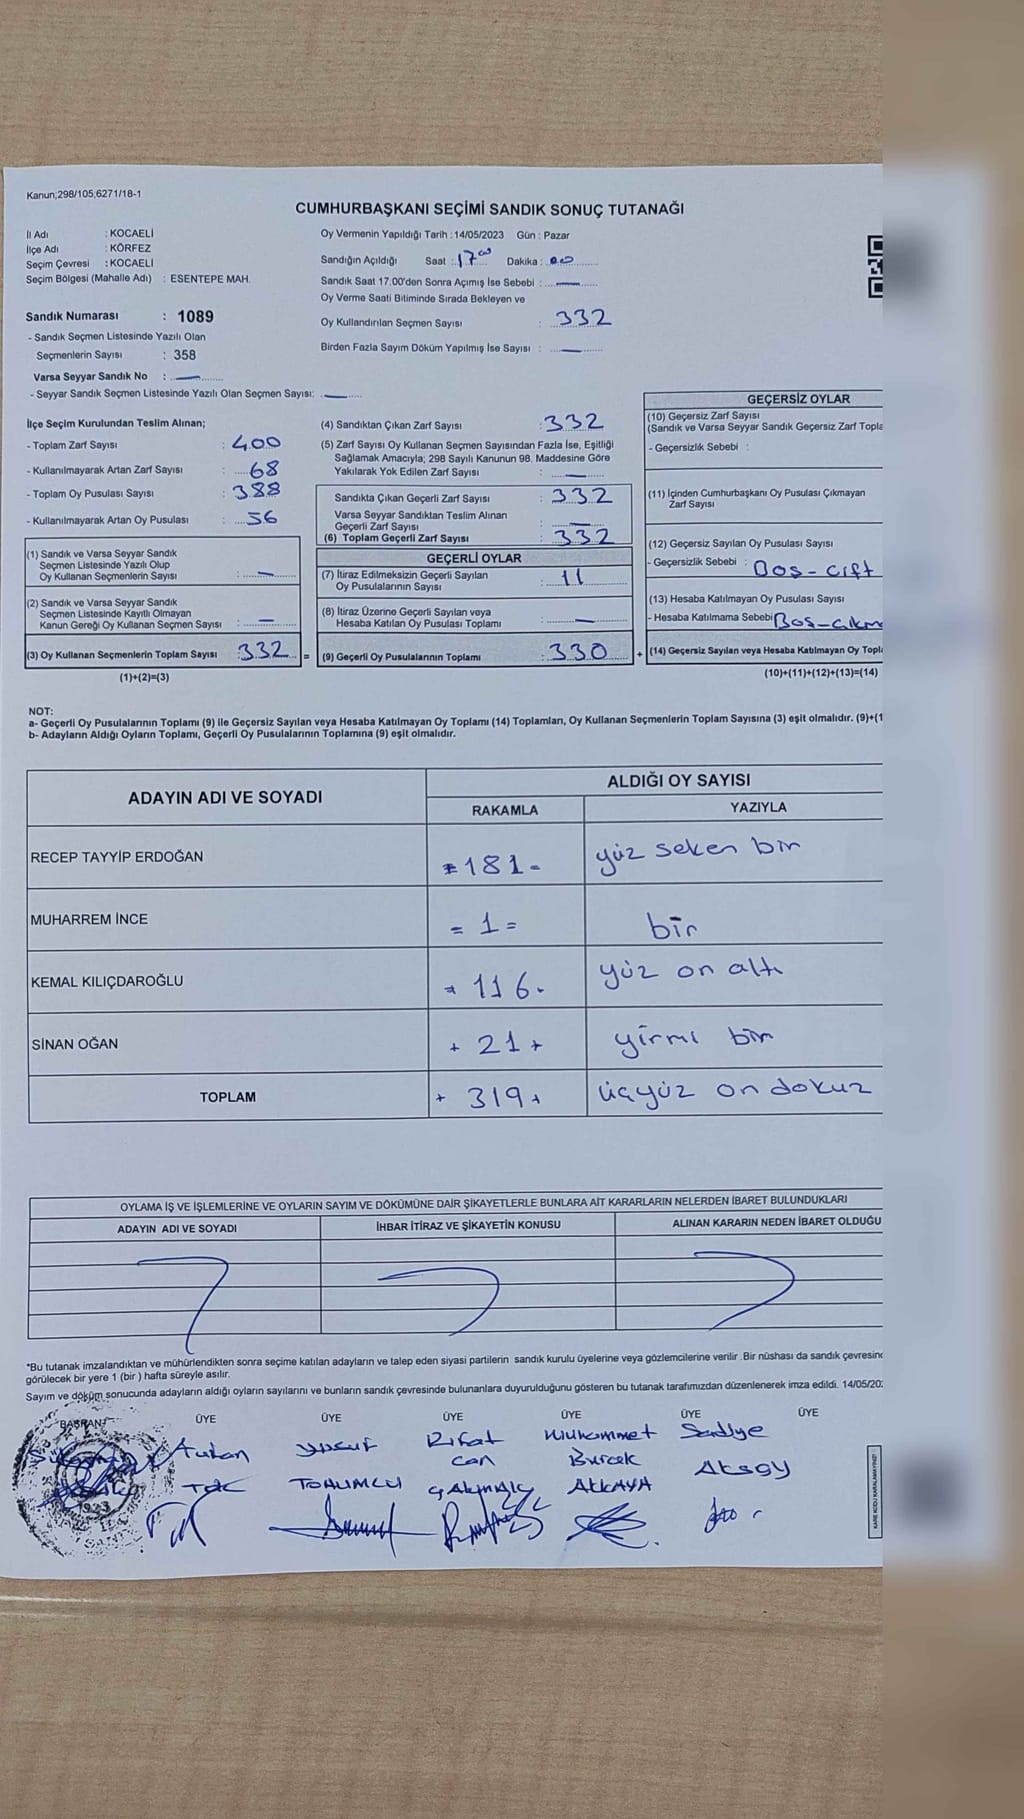 Kanun;298/105;6271/18-1
CUMHURBAŞKANI SEÇİMİ SANDIK SONUÇ TUTANAĞI
İl Adı : KOCAELİ
İlçe Adı : KÖRFEZ
Seçim Çevresi : KOCAELİ
Seçim Bölgesi (Mahalle Adı) : ESENTEPE MAH.
Sandık Numarası : 1089
- Sandık Seçmen Listesinde Yazılı Olan
Seçmenlerin Sayısı : 358
Varsa Seyyar Sandık No : —
- Seyyar Sandık Seçmen Listesinde Yazılı Olan Seçmen Sayısı: —
Oy Vermenin Yapıldığı Tarih : 14/05/2023 Gün : Pazar
Sandığın Açıldığı Saat : 17 00 Dakika : 00
Sandık Saat 17:00'den Sonra Açımış İse Sebebi : —
Oy Verme Saati Bitiminde Sırada Bekleyen ve
Oy Kullandırılan Seçmen Sayısı : 332
Birden Fazla Sayım Döküm Yapılmış İse Sayısı : —
İlçe Seçim Kurulundan Teslim Alınan;
- Toplam Zarf Sayısı : 400
- Kullanılmayarak Artan Zarf Sayısı : 68
- Toplam Oy Pusulası Sayısı : 388
- Kullanılmayarak Artan Oy Pusulası : 56
(1) Sandık ve Varsa Seyyar Sandık
Seçmen Listesinde Yazılı Olup
Oy Kullanan Seçmenlerin Sayısı : —
(2) Sandık ve Varsa Seyyar Sandık
Seçmen Listesinde Kayıtlı Olmayan
Kanun Gereği Oy Kullanan Seçmen Sayısı : —
(3) Oy Kullanan Seçmenlerin Toplam Sayısı : 332 =
(1)+(2)=(3)
(4) Sandıktan Çıkan Zarf Sayısı : 332
(5) Zarf Sayısı Oy Kullanan Seçmen Sayısından Fazla İse, Eşitliği
Sağlamak Amacıyla; 298 Sayılı Kanunun 98. Maddesine Göre
Yakılarak Yok Edilen Zarf Sayısı : —
Sandıkta Çıkan Geçerli Zarf Sayısı : 332
Varsa Seyyar Sandıktan Teslim Alınan
Geçerli Zarf Sayısı : —
(6) Toplam Geçerli Zarf Sayısı : 332
GEÇERLİ OYLAR
(7) İtiraz Edilmeksizin Geçerli Sayılan
Oy Pusulalarının Sayısı : 11
(8) İtiraz Üzerine Geçerli Sayılan veya
Hesaba Katılan Oy Pusulası Toplamı : —
(9) Geçerli Oy Pusulalarının Toplamı : 330 +
GEÇERSİZ OYLAR
(10) Geçersiz Zarf Sayısı
(Sandık ve Varsa Seyyar Sandık Geçersiz Zarf Topla
- Geçersizlik Sebebi :
(11) İçinden Cumhurbaşkanı Oy Pusulası Çıkmayan
Zarf Sayısı
(12) Geçersiz Sayılan Oy Pusulası Sayısı
- Geçersizlik Sebebi : Boş-çift
(13) Hesaba Katılmayan Oy Pusulası Sayısı
- Hesaba Katılmama Sebebi Boş-çıkm
(14) Geçersiz Sayılan veya Hesaba Katılmayan Oy Topl
(10)+(11)+(12)+(13)=(14)
NOT:
a- Geçerli Oy Pusulalarının Toplamı (9) ile Geçersiz Sayılan veya Hesaba Katılmayan Oy Toplamı (14) Toplamları, Oy Kullanan Seçmenlerin Toplam Sayısına (3) eşit olmalıdır. (9)+(1
b- Adayların Aldığı Oyların Toplamı, Geçerli Oy Pusulalarının Toplamına (9) eşit olmalıdır.
ADAYIN ADI VE SOYADI
ALDIĞI OY SAYISI
RAKAMLA YAZIYLA
RECEP TAYYİP ERDOĞAN =181= yüz seken bir
MUHARREM İNCE =1= bir
KEMAL KILIÇDAROĞLU =116= yüz on altı
SİNAN OĞAN +21+ yirmi bir
TOPLAM +319+ üçyüz on dokuz
OYLAMA İŞ VE İŞLEMLERİNE VE OYLARIN SAYIM VE DÖKÜMÜNE DAİR ŞİKAYETLERLE BUNLARA AİT KARARLARIN NELERDEN İBARET BULUNDUKLARI
ADAYIN ADI VE SOYADI İHBAR İTİRAZ VE ŞİKAYETİN KONUSU ALINAN KARARIN NEDEN İBARET OLDUĞU
*Bu tutanak imzalandıktan ve mühürlendikten sonra seçime katılan adayların ve talep eden siyasi partilerin sandık kurulu üyelerine veya gözlemcilerine verilir. Bir nüshası da sandık çevresind
görülecek bir yere 1 (bir ) hafta süreyle asılır.
Sayım ve döküm sonucunda adayların aldığı oyların sayılarını ve bunların sandık çevresinde bulunanlara duyurulduğunu gösteren bu tutanak tarafımızdan düzenlenerek imza edildi. 14/05/202
BAŞKAN ÜYE ÜYE ÜYE ÜYE ÜYE ÜYE
Yusuf Rıfat Muhammet Sadiye
can Burak Aksoy
TOHUMCU AKKAYA
KARE KODU KARALAMAYINIZ!